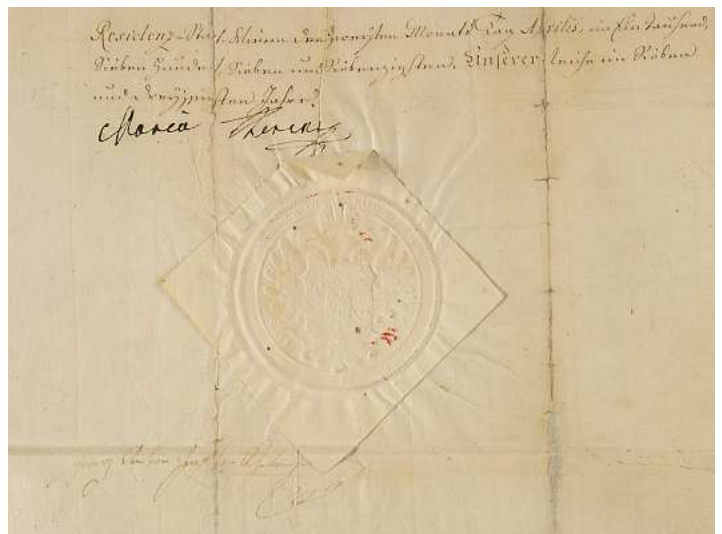 Residenz-Stadt Wienn den zweyten Monats Tag Aprilis, im Ein Tausend,
Sieben Hundert Sieben und Siebenzigsten, Unserer Reiche im Sieben
und dreyssigsten Jahre.
Maria Theresia